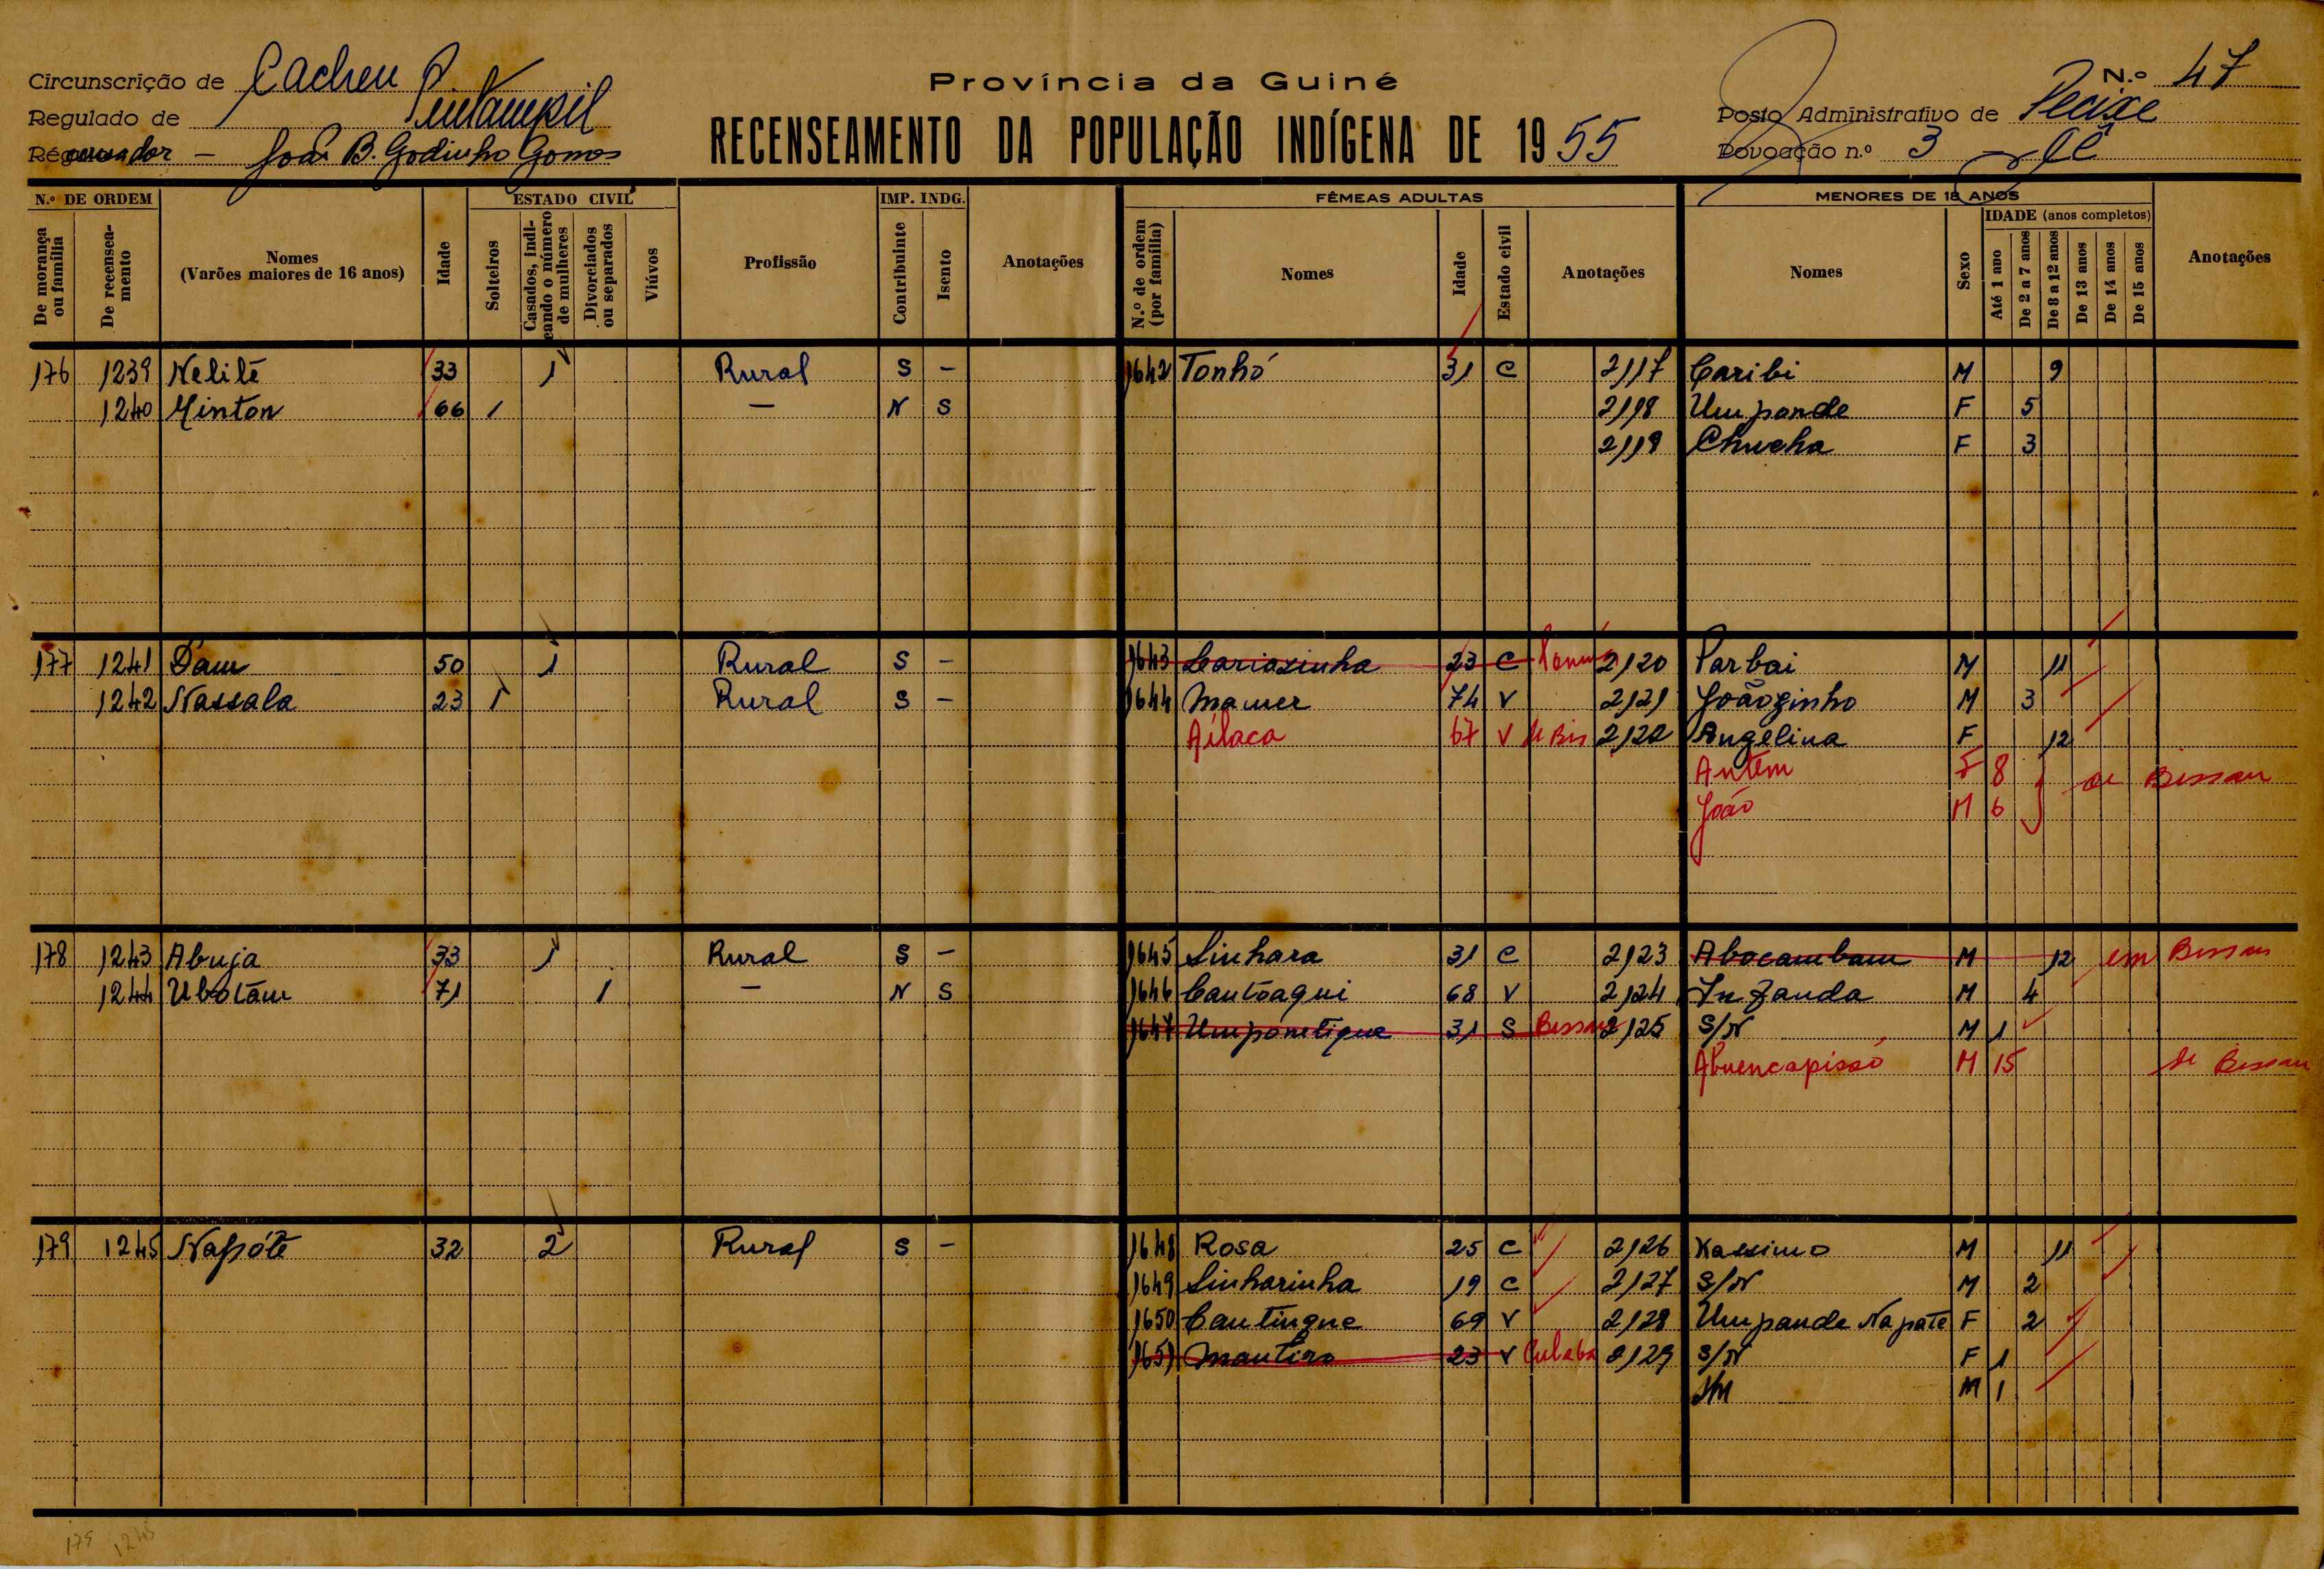 Circunscrição de Cacheu
Província da Guiné
N.º 47
Regulado de Pintampil
Posto Administrativo de Pecixe
Recenseador - João B. Godinho Gomes
RECENSEAMENTO DA POPULAÇÃO INDÍGENA DE 1955
Povoação n.º 3
N.º DE ORDEM
ESTADO CIVIL
IMP. INDG.
FÊMEAS ADULTAS
MENORES DE 18 ANOS
IDADE (anos completos)
De morança ou família
De recenseamento
Nomes (Varões maiores de 16 anos)
Idade
Solteiros
Casados, indicando o número de mulheres
Divorciados ou separados
Viúvos
Profissão
Contribuinte
Isento
Anotações
N.º de ordem (por família)
Nomes
Idade
Estado civil
Anotações
Nomes
Sexo
Até 1 ano
De 2 a 7 anos
De 8 a 12 anos
De 13 anos
De 14 anos
De 15 anos
Anotações
176 1239 Nelité 33 1 Rural S - 1642 Tonhó 31 C 2117 Caribi M 9
1240 Minton 66 1 - N S 2118 Umpande F 5
2119 Chucha F 3
177 1241 Dam 50 1 Rural S - 1643 Cariasinha 23 C 2120 Parbai M 11
1242 Nassala 23 1 Rural S - 1644 Mamer 74 V 2121 Joãozinho M 3
Ailaca 67 V de Bis 2122 Angelina F 12
Antem F 8 de Bissau
João M 6
178 1243 Abuja 33 1 Rural S - 1645 Sinhara 31 C 2123 Abocambam M 12 em Bissau
1244 Ubotam 71 1 - N S 1646 Cantoaqui 68 V 2124 In Zanda M 4
1647 Umponetique 31 S Bissau 2125 S/N M 1
Abuencapissó M 15 de Bissau
179 1245 Napóte 32 2 Rural S - 1648 Rosa 25 C 2126 Kassimo M 11
1649 Sinharinha 19 C 2127 S/N M 2
1650 Cantingue 69 V 2128 Umpande Napate F 2
1651 Mantiro 23 V Culaba 2129 S/N F 1
S/N M 1
179 1245